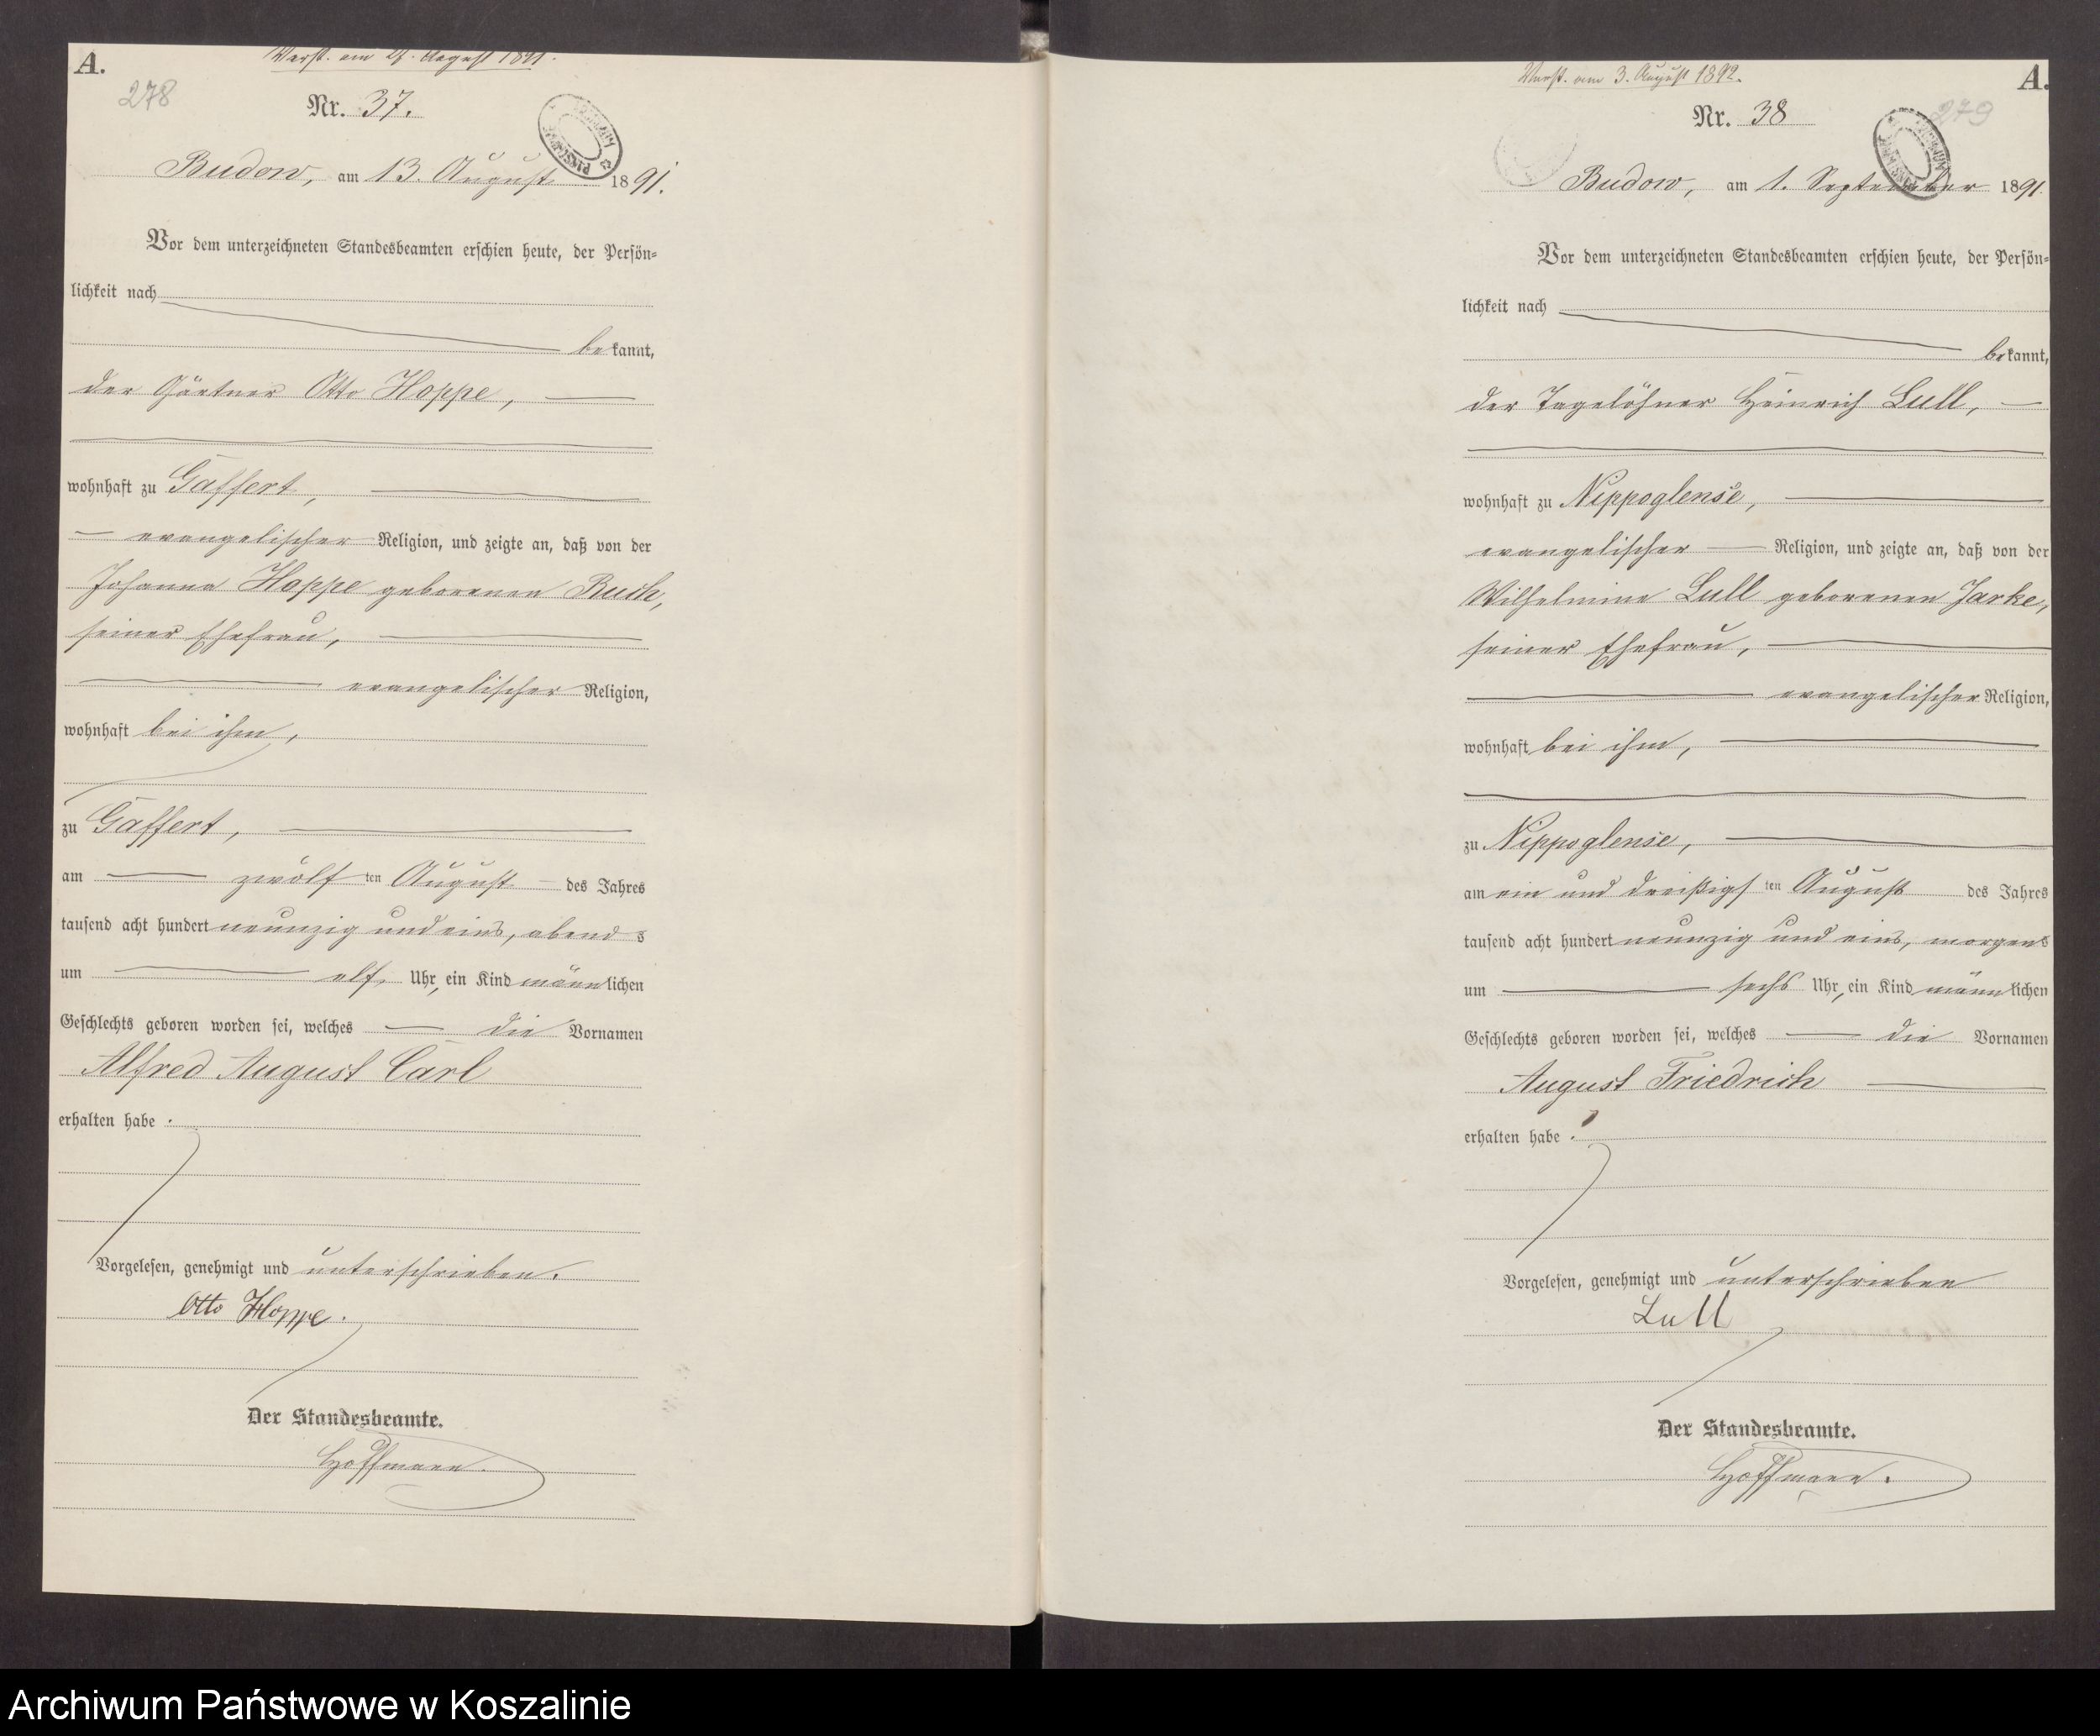 A.
Verst. am 29. August 1891.
278
Nr. 37.
Budow, am 13. August 1891.
Vor dem unterzeichneten Standesbeamten erschien heute, der Persön-
lichkeit nach
bekannt,
der Gärtner Otto Hoppe,
wohnhaft zu Gaffert,
evangelischer Religion, und zeigte an, daß von der
Johanna Hoppe geborenen Ruch,
seiner Ehefrau,
evangelischer Religion,
wohnhaft bei ihm,
zu Gaffert,
am zwölften August des Jahres
tausend acht hundert neunzig und eins, abends
um elf Uhr, ein Kind männlichen
Geschlechts geboren worden sei, welches die Vornamen
Alfred August Carl
erhalten habe.
Vorgelesen, genehmigt und unterschrieben.
Otto Hoppe.
Der Standesbeamte.
Hoffmann.
A.
Verst. am 3. August 1892.
279
Nr. 38
Budow, am 1. September 1891.
Vor dem unterzeichneten Standesbeamten erschien heute, der Persön-
lichkeit nach
bekannt,
der Tagelöhner Heinrich Lull,
wohnhaft zu Nippoglense,
evangelischer Religion, und zeigte an, daß von der
Wilhelmine Lull geborenen Jarke,
seiner Ehefrau,
evangelischer Religion,
wohnhaft bei ihm,
zu Nippoglense,
am ein und dreißigsten August des Jahres
tausend acht hundert neunzig und eins, morgens
um sechs Uhr, ein Kind männlichen
Geschlechts geboren worden sei, welches die Vornamen
August Friedrich
erhalten habe.
Vorgelesen, genehmigt und unterschrieben
Lull
Der Standesbeamte.
Hoffmann.
Archiwum Państwowe w Koszalinie